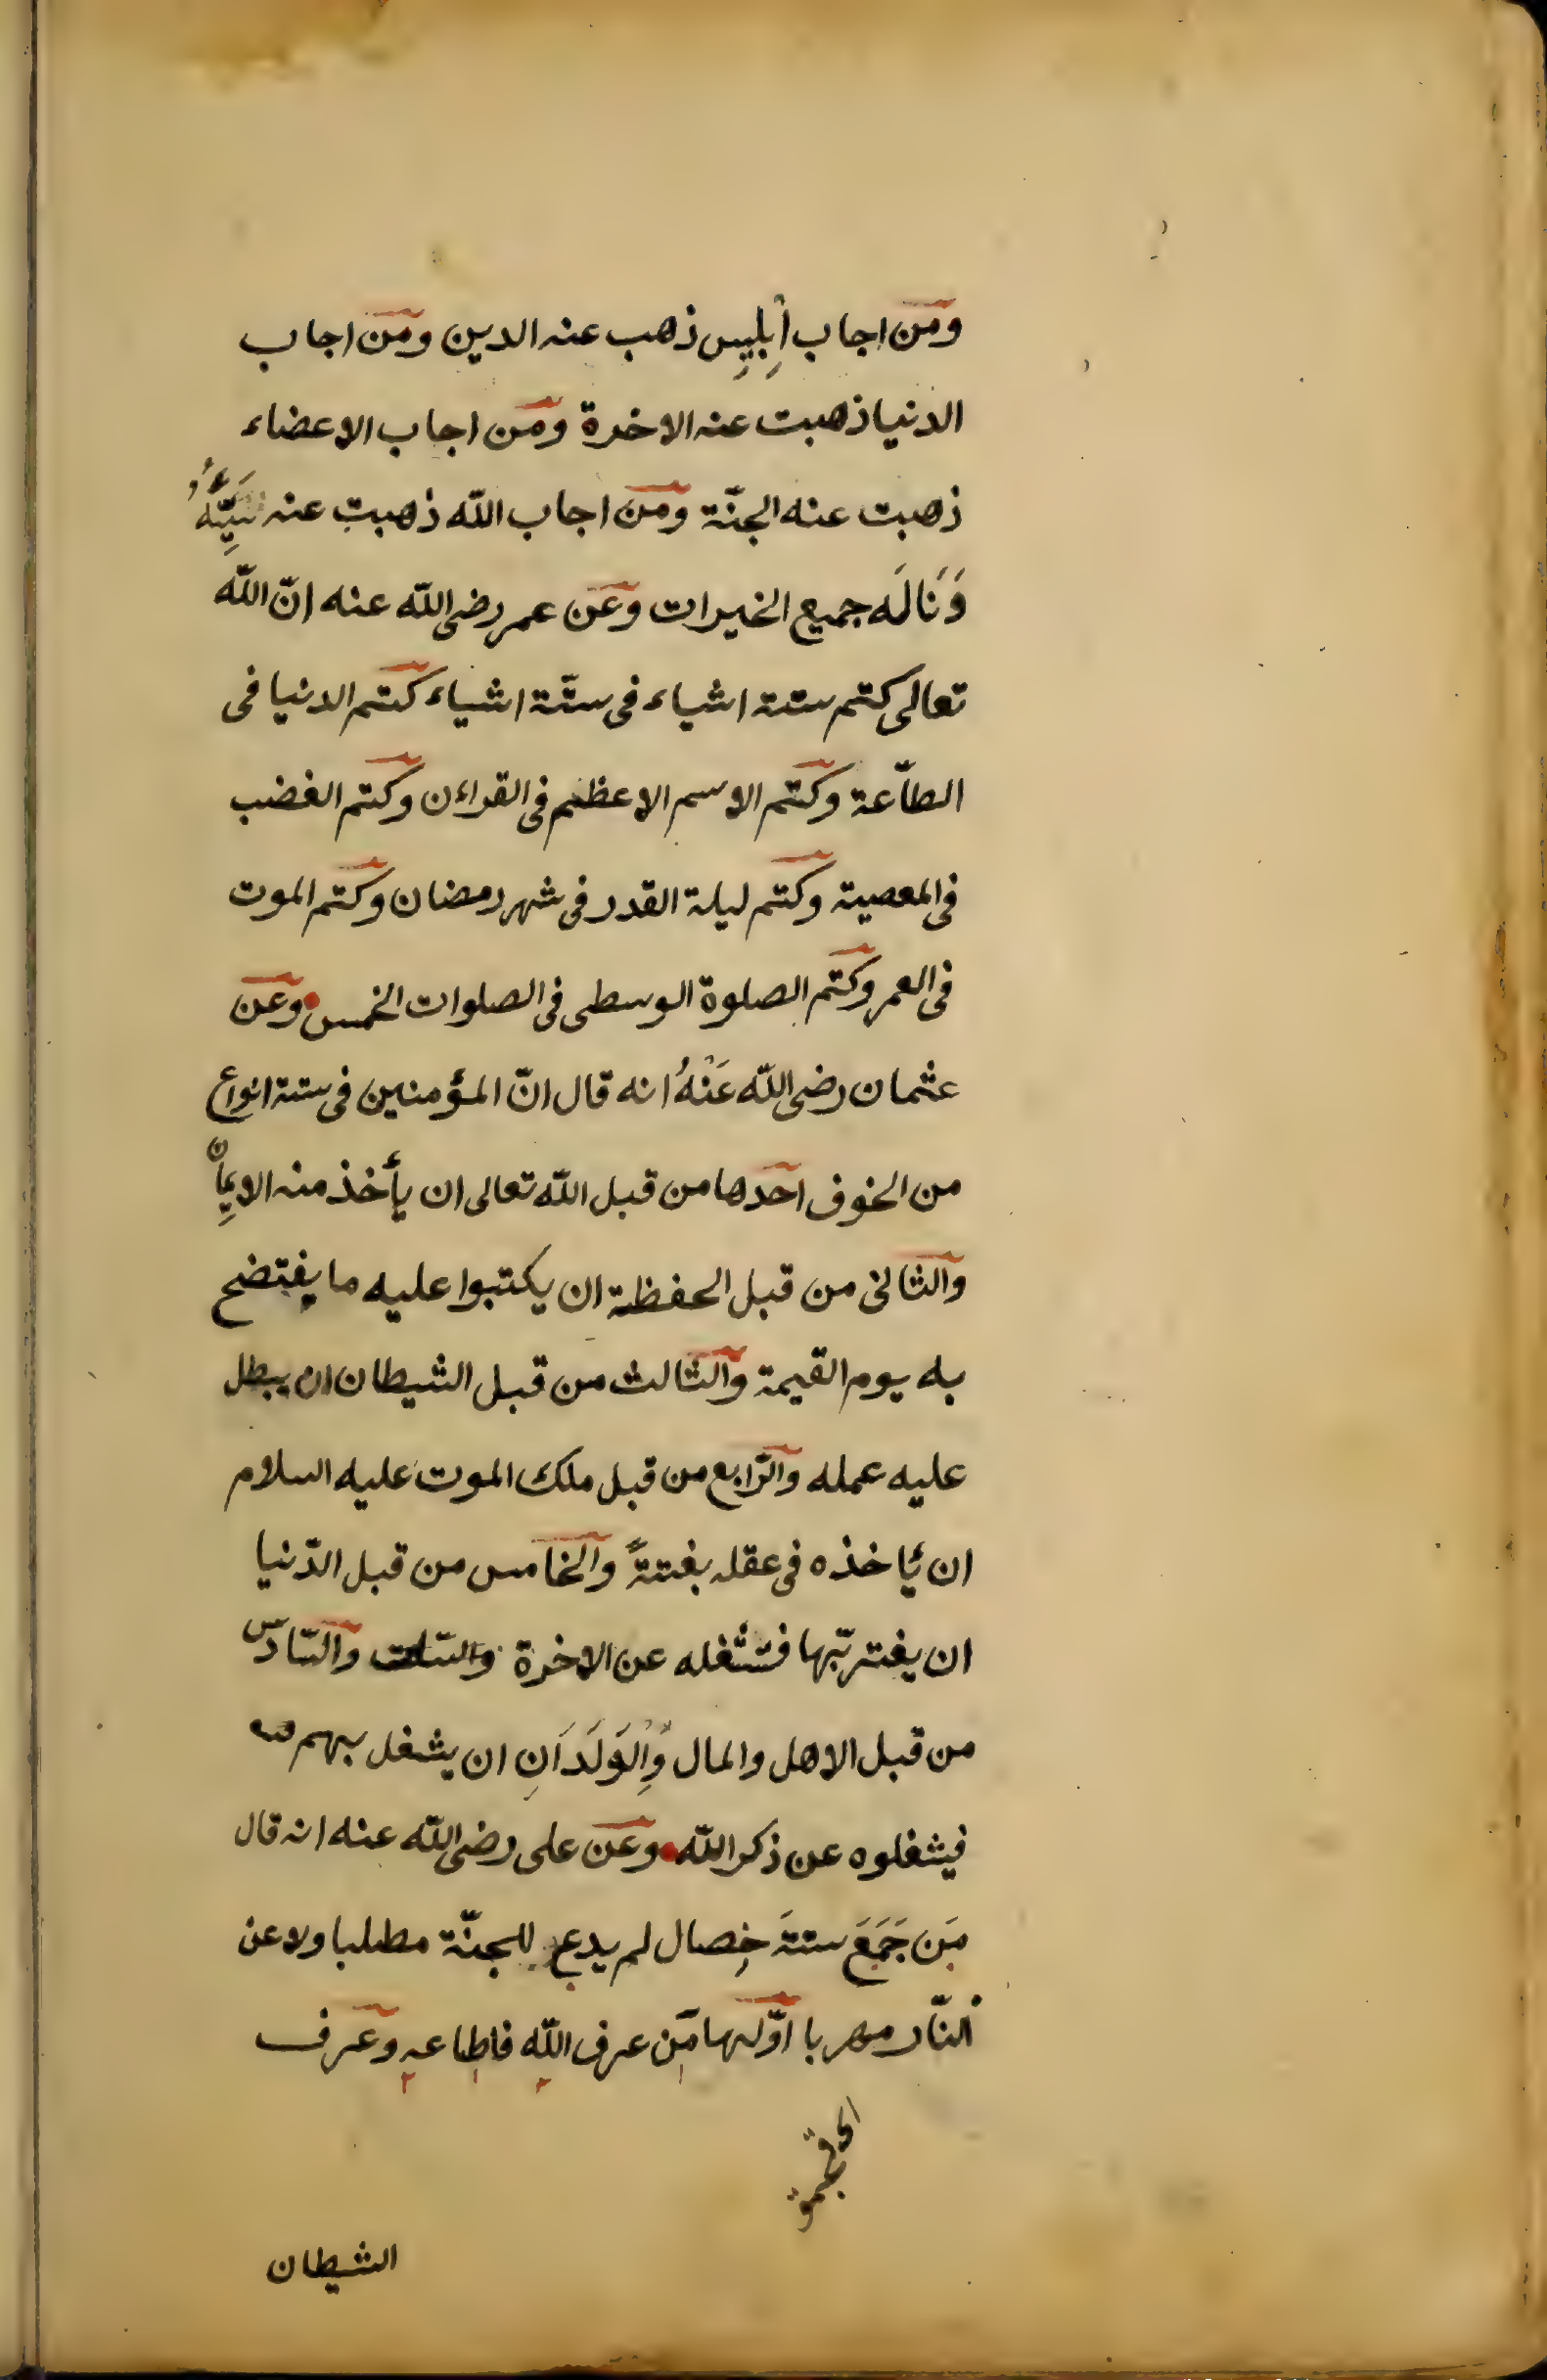 ومن اجاب اِبليس ذهب عنه الدين ومن اجاب
الدنيا ذهبت عنه الاخرة ومن اجاب الاعضاء
ذهبت عنه الجنّة ومن اجاب اللّه ذهبت عنه
وَنَالَه جميع الخيرات وعن عمر رضى اللّه عنه انّ اللّه
تعالى كتم ستة اشياء فى ستّة اشياء كتم الدنيا فى
الطّاعة وكتم الاسم الاعظم فى القراءن وكتم الغضب
فى المعصية وكتم ليلة القدر فى شهر رمضان وكتم الموت
فى العمر وكتم الصلوة الوسطى فى الصلوات الخمس وعن
عثمان رضى اللّه عَنْهُ انه قال انّ المؤمنين فى ستة انواع
من الخوف احدها من قبل اللّه تعالى ان يأخذ منه الايِمان
والثانى من قبل الحفظة ان يكتبوا عليه ما يفتضح
به يوم القيمة والثالث من قبل الشيطان ان يبطل
عليه عمله والرّابع من قبل ملك الموت عليه السلام
ان يأخذه فى عقله بغتةً والخامس من قبل الدّنيا
ان يغتر بّها فتشْغله عن الاخرة والسّادس
من قبل الاهل والمال وَالْوَلَدَانِ ان يشغل بهم
فيشغلوه عن ذكر اللّه وعن على رضى اللّه عنه انه قال
مَن جَمَعَ ستةَ خِصال لم يدع للجنّة مطلبا ولا عن
النّار مهربا اوّلها مَن عرف اللّه فاطاعه وعرف
الشيطان